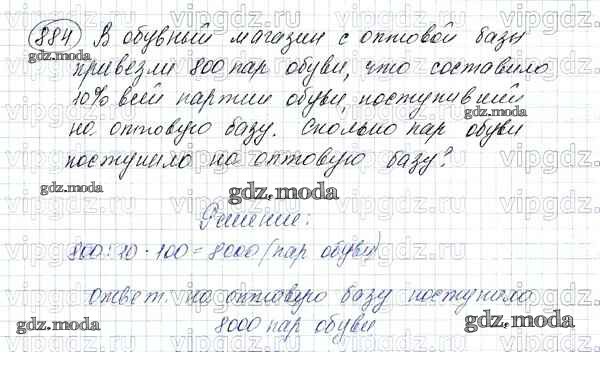 884 В обувный магазин с оптовой базы
привезли 800 пар обуви, что составило
10% всей партии обуви, поступившей
на оптовую базу. Сколько пар обуви
поступило на оптовую базу?
Решение:
800:10·100=8000 (пар обуви)
Ответ: на оптовую базу поступило
8000 пар обуви
gdz.moda
gdz.moda
gdz.moda
gdz.moda
gdz.moda
gdz.moda